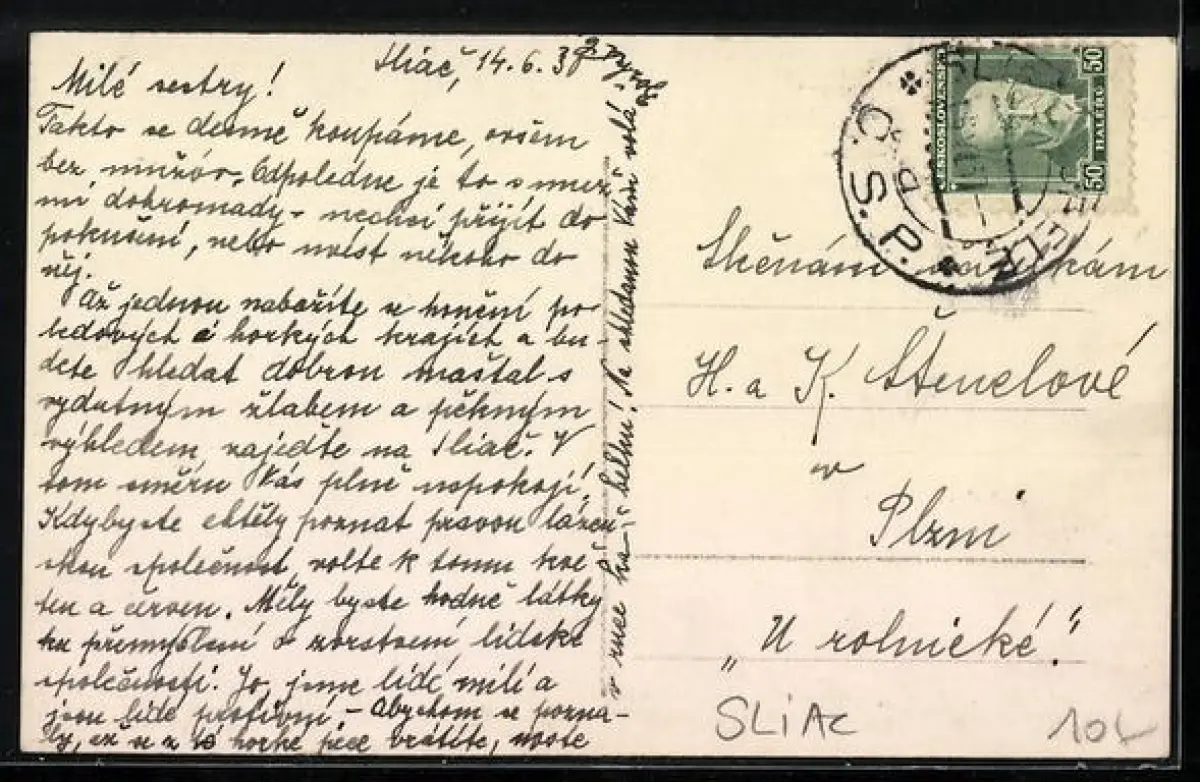 Sliač, 14.6.3
Milé sestry!
Takto se denně koupáme, ovšem
bez mužův. Odpoledne je to s muž
mi dohromady – nechci přijít do
pokušení, nebo uvést někoho do
něj.
Až jednou nabažíte se honění po
ledových a horkých krajích a bu-
dete hledat dobrou maštal s
vydatným žlabem a pěkným
výhledem, zajeďte na Sliač. V
tom směru Vás plně uspokojí.
Kdybyste chtěly poznat pravou lázeň-
skou společnost, volte k tomu kvě
ten a červen. Měly byste hodně látky
ku přemýšlení o zvrstvení lidské
společnosti. Jo, jsme lidé milí a
jsou lidé protivní. – Abychom se pozna-
ly, až se z té horké pece vrátíte, noste
v ruce ku- belku! Na shledanou Vám volá
ČESKOSLOVENSK
50 HALÉŘŮ 50
Č.S.P.
Slečnám
H. a K. Štenclové
v
Plzni
„U rolnické."
SLIAC